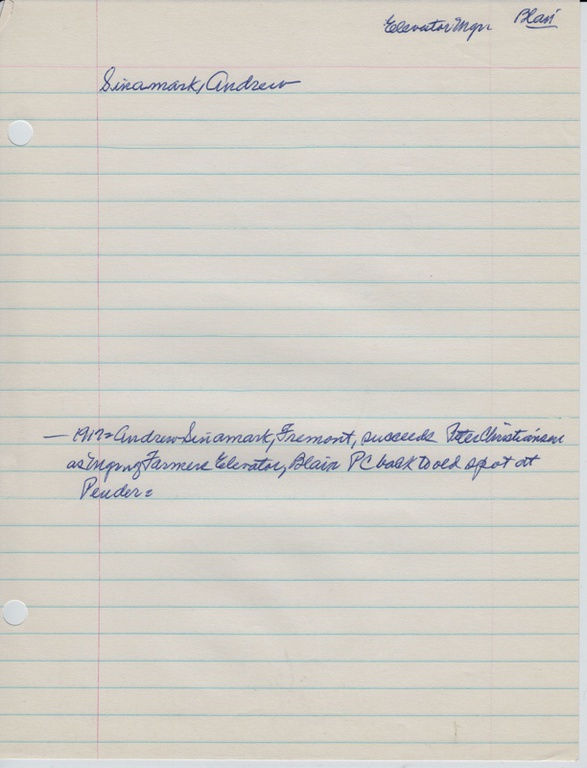 Elevator Mgr Blair
Sinamark, Andrew
— 1917= Andrew Sinamark, Fremont, succeeds Peter Christiansen
as Mgr of Farmers Elevator, Blair PC back to old spot at
Pender=